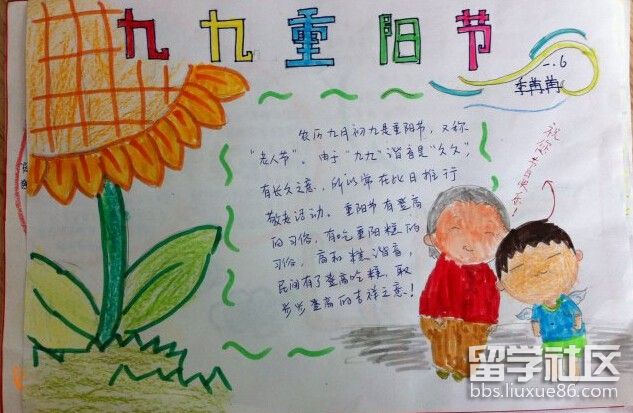 九九重阳节
一.6
农历九月初九是重阳节，又称
“老人节”。由于“九九”谐音是“久久”，
有长久之意，所以常在此日推行
敬老活动。重阳节有登高
的习俗，有吃重阳糕的
习俗，高和糕谐音，
民间有了登高吃糕，取
步步登高的吉祥之意！
祝你节日快乐！
留学社区
bbs.liuxue86.com